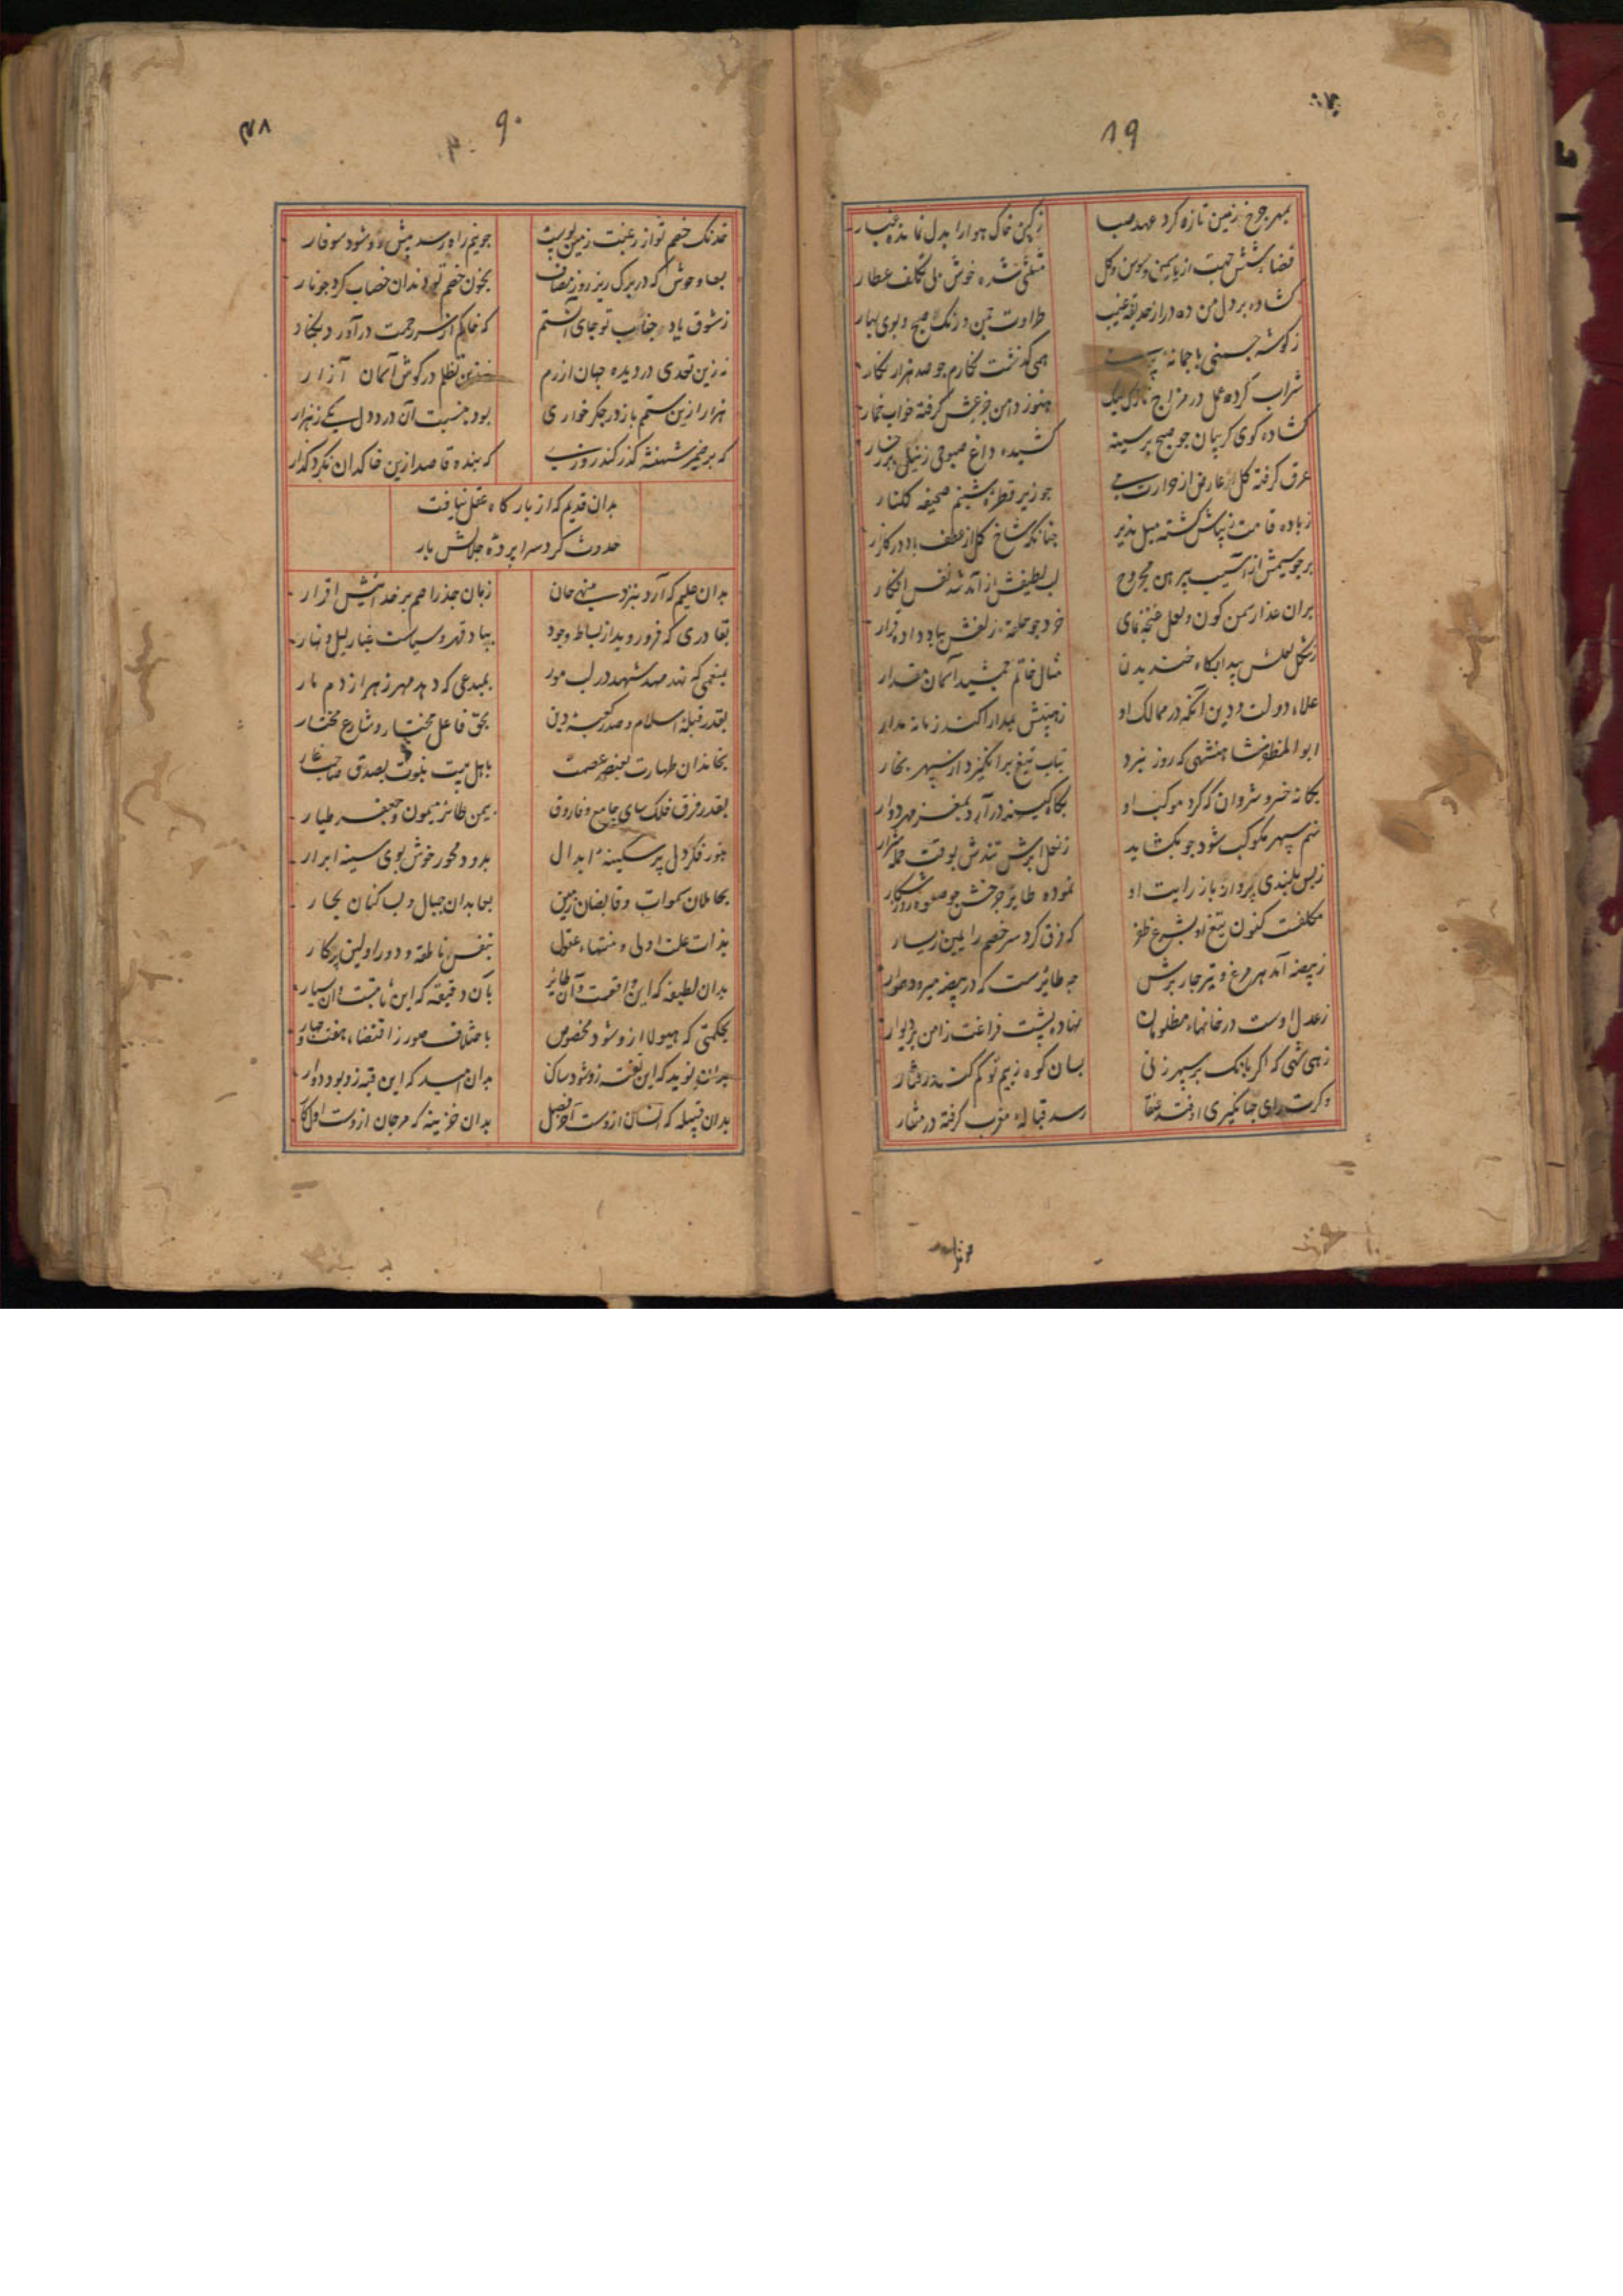 ۸۹
بمهر چرخ زمین تازه کرد عهد صبا
ز کین خاک هوا را بدل نمانده غبار
فضا بشش جهت از یاسمین و سوسن و کل
مثلثی شده خوش بی تکلف عطار
کشاده بر دل من ده در از حدیقه غیب
طراوت چمن و رنک صبح و بوی بهار
ز کوشه جستنی با جمانه
همی کذشت نکارم جو صد هزار نکار
شراب کرده عمل در مزاج نازک
هنوز دامن جزعش کرفته خواب خمار
کشاده کوی کریبان جو صبح بر سینه
کشیده داغ صبوحی ز نیل بر رخسار
عرق کرفته کل عارض از حرارت می
جو زیر قطره شبنم صحیفه کلنار
ز باده قامت زیباش کشته میل پذیر
جنانکه شاخ کل از عطف باد در کلزار
بر جو سیمش از آسیب پیرهن مجروح
لب لطیفش از آمد شد نفس افکار
بران عذار سمن کون و لعل غنچه نمای
خرد جو حلقه زلفش بباد داده قرار
ز شکل لعلش پیدا بکاه خندیدن
مثال خاتم جمشید آسمان مقدار
علاء دولت و دین آنکه در ممالک او
زمینش بمدارا کند زمانه مدار
ابوالمظفر شاهنشهی که روز نبرد
بتاب تیغ برانکیزد از سپهر بخار
یکانه خسرو شروان که کرد موکب او
بکاه کینه درآرد بمغز مهر دوار
نهم سپهر مکوکب شود جو بکشاید
ز نعل ابرش تندش بوقت حمله شرار
ز بس بلندی پرواز باز رایت او
نموده طایر چرخش جو صعوه روز شکار
مکلفست کنون تیغ او بشرع ظفر
که فرق کرد سر خصم را یمین ز یسار
ز بیضه آمد هر مرغ و تیر جاربرش
جه طایرست که در بیضه میرود هموار
ز عدل اوست در خانهاء مظلومان
نهاده پشت فراغت ز امن بر دیوار
زهی شهی که اکر بانک بر سپهر زنی
بسان کوه ز بیم تو کم کند رفتار
وکرت رای جهانکیری اوفتد عنقا
رسد قباله مغرب کرفته در منقار
۹۰
خدنک خصم تو از رغبت زمین بوست
جو نیم راه رسد پیش رو شود سوفار
بها و حوش که در برک ریز روز مصاف
بخون خصم تو دندان خضاب کرد جو نار
ز شوق یاد جناب تو جای آنستم
که خاکم از سر رحمت درآورد بکنار
نه زین تعدی در دیده جهان آزرم
نه زین تظلم در کوش آسمان آزار
هزار ازین ستم باز در جکر خواری
بود بنسبت آن درد دل یکی ز هزار
که بر ضمیر شهنشه کذر کند روزی
که بنده قاصد ازین خاکدان نکرد کذار
بدان قدیم که از بارکاه عقل نیافت
حدوث کرد سراپرده جلالش بار
بدان علیم که آرد بنزد منهی جان
زبان جذر اصم بر خدائیش اقرار
بقادری که فرو روبد از بساط وجود
بباد قهر و سیاست غبار لیل و نهار
بمنعمی که نهد مهد شهد در لب مور
بمبدعی که دهد مهر زهر از دم مار
بقدر قبله اسلام و صدر کعبه دین
بحق فاعل مختار و شارع مختار
بخاندان طهارت بعنصر عصمت
باهل بیت نبوت بصدق صاحب غار
بقدر فرق فلک سای جامع و فاروق
بیمن طائر میمون جعفر طیار
بنور فکر دل پر سکینه ابدال
بدود مجمر خوش بوی سینه ابرار
بحاملان سموات و قابضان زمین
بعابدان جبال و لب کنان بحار
بذات علت اولی و منتهاء عقول
بنفس ناطقه و دور اولین پرکار
بدان لطیفه که این واقعست وآن طایر
بآن دقیقه که این ثابتست وآن سیار
بحکمتی که هیولا ازو شود مخصوص
باختلاف صور ز اقتضاء هفت و جهار
بدان نوید که این نفس زو شود ساکن
بدان امید که این قبه زو بود دوار
بدان قبیله که انسان ازوست آخر فصل
بدان خزینه که مرجان ازوست اول کار